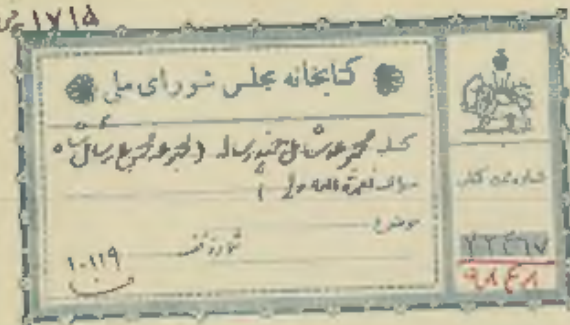 ۱۷۱۵
کتابخانه مجلس شورای ملی
کتاب مجموعه شامل چند رساله (مجموعه رسائل شاه
مؤلف نعمة الله ولی)
موضوع
شماره قفسه
۱۰۱۱۹
شماره ثبت کتاب
۹۸۴۸